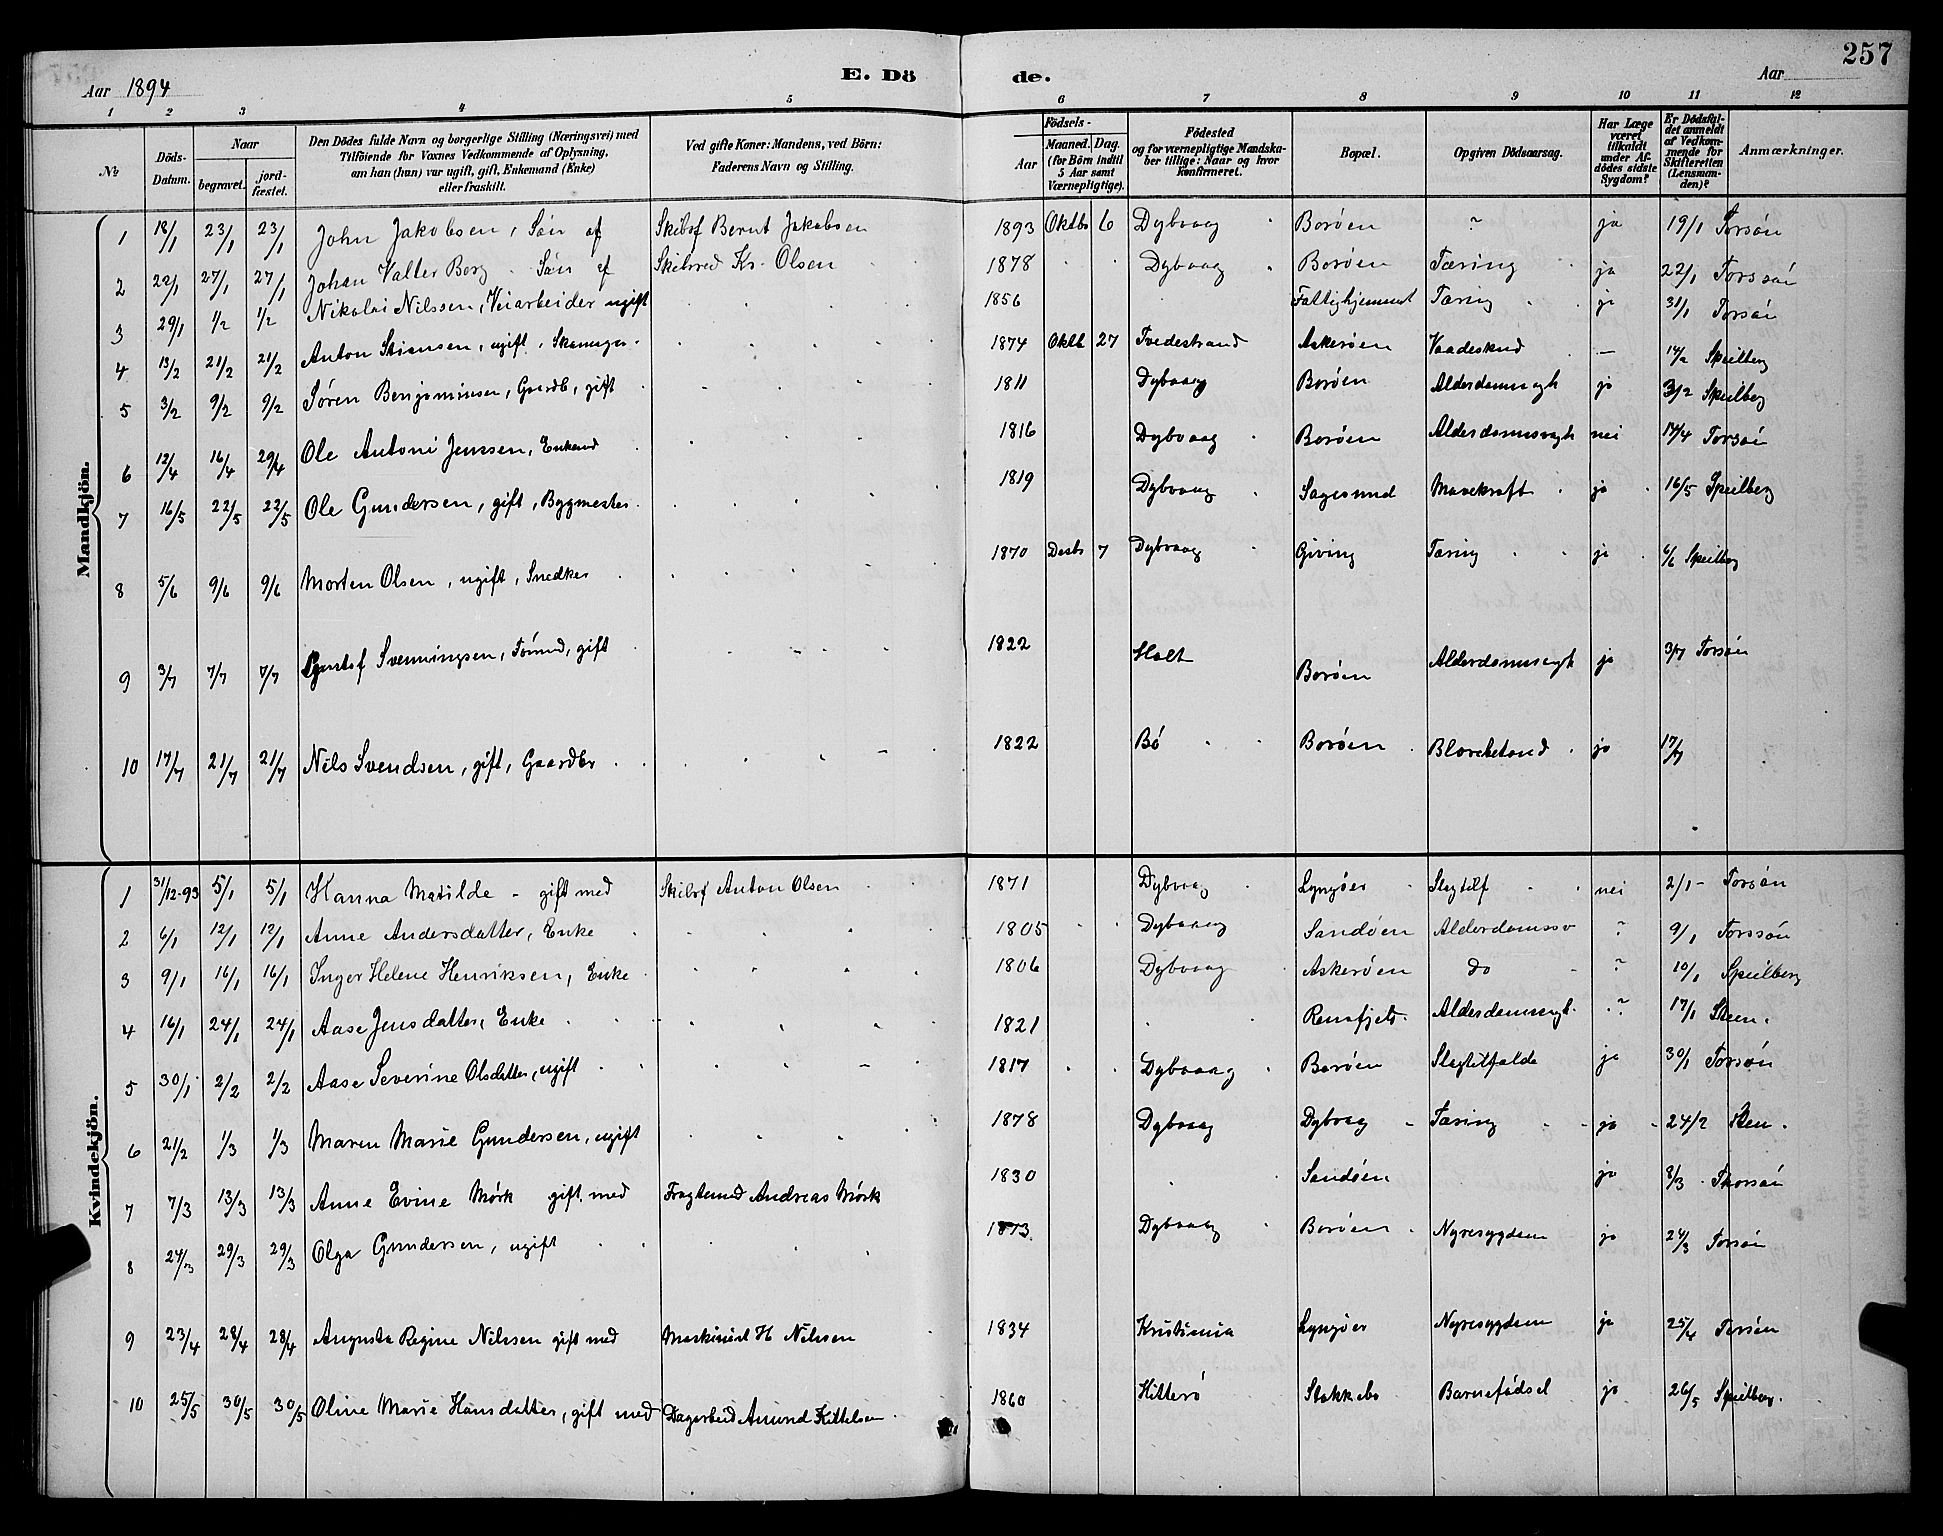 257
Aar 1894 E. Dö de. Aar
1 2 3 4 5 6 7 8 9 10 11 12
№
Döds-Datum.
Naar
begravet.
jord-fæstet.
Den Dödes fulde Navn og borgerlige Stilling (Næringsvei) med
Tilföiende for Voxnes Vedkommende af Oplysning,
om han (hun) var ugift, gift, Enkemand (Enke)
eller fraskilt.
Ved gifte Koner: Mandens, ved Börn:
Faderens Navn og Stilling.
Födsels-
Aar
Maaned. Dag.
(for Börn indtil
5 Aar samt
Værnepligtige).
Födested
og for værnepligtige Mandska-
ber tillige: Naar og hvor
konfirmeret.
Bopæl.
Opgiven Dödsaarsag.
Har Læge
været
tilkaldt
under Af-
dödes sidste
Sygdom?
Er Dödsfal-
det anmeldt
af Vedkom-
mende for
Skifteretten
(Lensman-
den)?
Anmærkninger.
Mandkjön.
1 18/1 23/1 23/1 John Jakobsen, Søn af Skibsf Bernt Jakobsen 1893 Oktbr 6 Dybvaag Borøen ? ja 19/1 Torsøn
2 22/1 27/1 27/1 Johan Valter Borg - Søn af Skibsred Kr. Olsen 1878 Dybvaag Borøen Tæring ja 22/1 Torssøn
3 29/1 1/2 1/2 Nikolai Nilssen, Veiarbeider ugift 1856 Fattighjemmet Tæring ja 31/1 Torsøn
4 13/2 21/2 21/2 Anton Stiansen, ugift, 1874 Oktb 27 Tvedestrand Askerøen Vaadeskud — 14/2 Speilberg
5 3/2 9/2 9/2 Søren Benjaminsen, Gaardb, gift 1811 Dybvaag Borøen Alderdomssvgh ja 3/2 Speilberg
6 12/4 16/4 29/4 Ole Antoni Jenssen, Enkemd 1816 Dybvaag Borøen Alderdomssvgh nei 14/4 Torsøn
7 16/5 22/5 22/5 Ole Gundersen, gift, Bygmester 1819 Dybvaag Sagesund Mavekræft ja 16/5 Speilberg
8 5/6 9/6 9/6 Morten Olsen, ugift, Snedker 1870 Desbr 7 Dybvaag Giving Tæring ja 6/6 Speilberg
9 3/7 7/7 7/7 Gustaf Svenningsen, Tømmd, gift 1822 Holt Borøen Alderdomssvgh ja 3/7 Torsøn
10 17/7 21/7 21/7 Nils Svendsen, gift, Gaardbr 1822 Bø Borøen ja 17/7
Kvindekjön.
1 31/12-93 5/1 5/1 Hanna Matilde - gift med Skibsf Anton Olsen 1871 Dybvaag Lyngøer Slagtilf nei 2/1 - Torsøn
2 6/1 12/1 12/1 Anne Andersdatter, Enke 1805 Dybvaag Sandøen Alderdomssv ? 9/1 Torssøn
3 9/1 16/1 16/1 Inger Helene Henriksen, Enke 1806 Dybvaag Askerøen do ? 10/1 Speilberg
4 16/1 24/1 24/1 Aase Jensdatter, Enke 1821 Alderdomssvgt. ? 17/1 Steen.
5 30/1 2/2 2/2 Aase Severine Olsdatter, ugift 1817 Dybvaag Borøen Slagtilfælde ja 30/1 Torsøn
6 21/2 1/3 1/3 Maren Marie Gundersen, ugift 1878 Dybvaag Dybvag Tæring ja 24/2 Sten.
7 7/3 13/3 13/3 Anne Evine Mørk gift med Fragtemd Andreas Mørk 1830 Sandøen ja 8/3 Thorsøn
8 24/3 29/3 29/3 Olga Gundersen, ugift 1873 Dybvaag Borøen Nyresygdom ja 24/3 Torsøn
9 23/4 28/4 28/4 Augusta Regine Nilssen gift med Maskinist H Nilssen 1834 Kristiania Lyngøer Nyresygdom ja 25/4 Torsøn
10 25/5 30/5 30/5 Oline Marie Hansdatter, gift med Dagarbeid Amund Kittelsen 1860 Hitterø Stakkebo Barnefødsel ja 26/5 Speilberg.